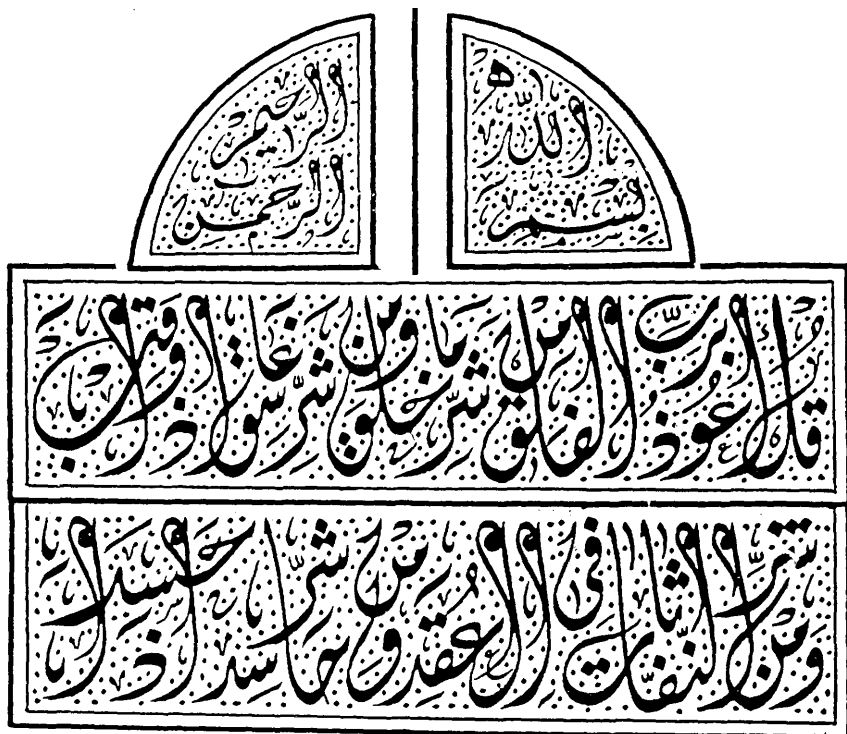 بسم الله
الرحمن الرحيم
قل أعوذ برب الفلق من شر ما خلق ومن شر غاسق اذا وقب
ومن شر النفاثات فى العقد ومن شر حاسد اذا حسد